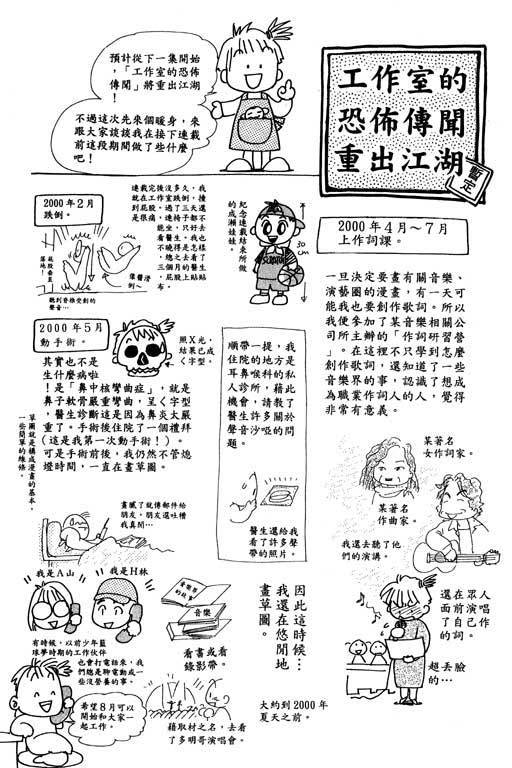 工作室的
恐怖傳聞
重出江湖
暫定
預計從下一集開始
，「工作室的恐怖
傳聞」將重出江湖
！
不過這次先來個暖身，來
跟大家談談我在接下連載
前這段期間做了些什麼
吧！
2000年2月
跌倒。
連載完後沒多久，我
就在工作室跌倒，撞
到屁股。過了三天還
是很痛，連椅子都不
能坐，只好去
看醫生。我也
不曉得是怎樣
，總之去看了
三個月的醫生
，屁股上貼貼
布。
紀念連載結束所做
的成瀨娃娃。
30cm
2000年4月～7月
上作詞課。
一旦決定要畫有關音樂、
演藝圈的漫畫，有一天可
能我也要創作歌詞。所以
我便參加了某音樂相關公
司所主辦的「作詞研習營
」。在這裡不只學到怎麼
創作歌詞，還知道了一些
音樂界的事，認識了想成
為職業作詞人的人，覺得
非常有意義。
某著名
女作詞家。
某著名
作曲家。
我還去聽了他
們的演講。
還在眾人
面前演唱
了自己作
的詞。
超丟臉
的…
2000年5月
動手術。
照X光，
結果已成
く字型。
其實也不是
生什麼病啦
！是「鼻中核彎曲症」，就是
鼻子軟骨嚴重彎曲，呈く字型
，醫生診斷這是因為鼻炎太嚴
重了。手術後住院了一個禮拜
（這是我第一次動手術！）。
可是手術前後，我仍然不管熄
燈時間，一直在畫草圖。
草圖就是構成漫畫的基本，
一些簡單的線條。
順帶一提，我
住院的地方是
耳鼻喉科的私
人診所，藉此
機會，請教了
醫生許多關於
聲音沙啞的問
題。
醫生還給我
看了許多聲
帶的照片。
畫膩了就傳郵件給
朋友，朋友還吐槽
我真閒…
我是A山
我是H林
有時候，以前少年籃
球夢時期的工作伙伴
也會打電話來，我
們總是聊電動或一
些沒營養的事。
希望8月可以
開始和大家一
起工作。
音樂界
的故事
音樂
看書或看
錄影帶。
藉取材之名，去看
了多明哥演唱會。
因此這時候…
我還在悠閒地
畫草圖。
大約到2000年
夏天之前。